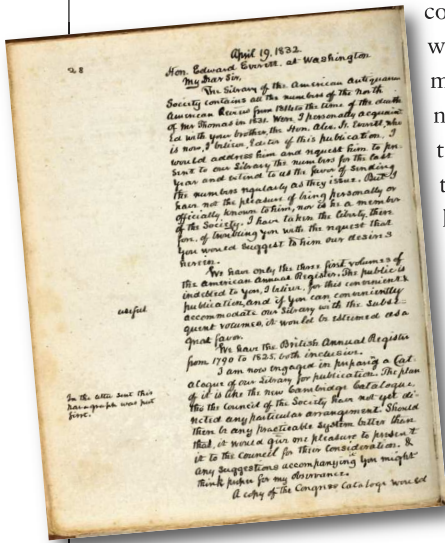 28
April 19, 1832.
Hon. Edward Everett. at Washington
My Dear Sir,
The Library of the American Antiquarian
Society contains all the numbers of the North
American Review from to the time of the death
of Mr Thomas in 1831. Were I personally acquaint-
ed with your brother, the Hon. Alex. H. Everett, who
is now, I believe, Editor of this publication, I
would address him and request him to pre-
sent to our Library the numbers for the last
year and extend to us the favor of sending
the numbers regularly as they issue. But I
have not the pleasure of being personally or
officially known to him, nor is he a member
of the Society. I have taken the liberty, there-
fore, of troubling you with the request that
you would suggest to him our desires
herein.
We have only the three first volumes of
the American Annual Register. The public is
indebted to you, I believe, for this convenient &
useful
publication, and if you can conveniently
accommodate our Library with the subse-
quent volumes, it would be esteemed as a
great favor.
We have the British Annual Register
from 1790 to 1825, both inclusive.
I am now engaged in preparing a Cat-
alogue of our Library for publication. The plan
of it is like the new Cambridge Catalogue,
tho the Council of the Society have not yet di-
rected any particular arrangement. Should
there be any practicable system better than
that, it would give me pleasure to present
it to the Council for their consideration, &
any suggestions accompanying you might
think proper for my observance.
A copy of the Congress Catalogue would
In the letter sent this
paragraph was put
first.
co
w
m
n
t
t